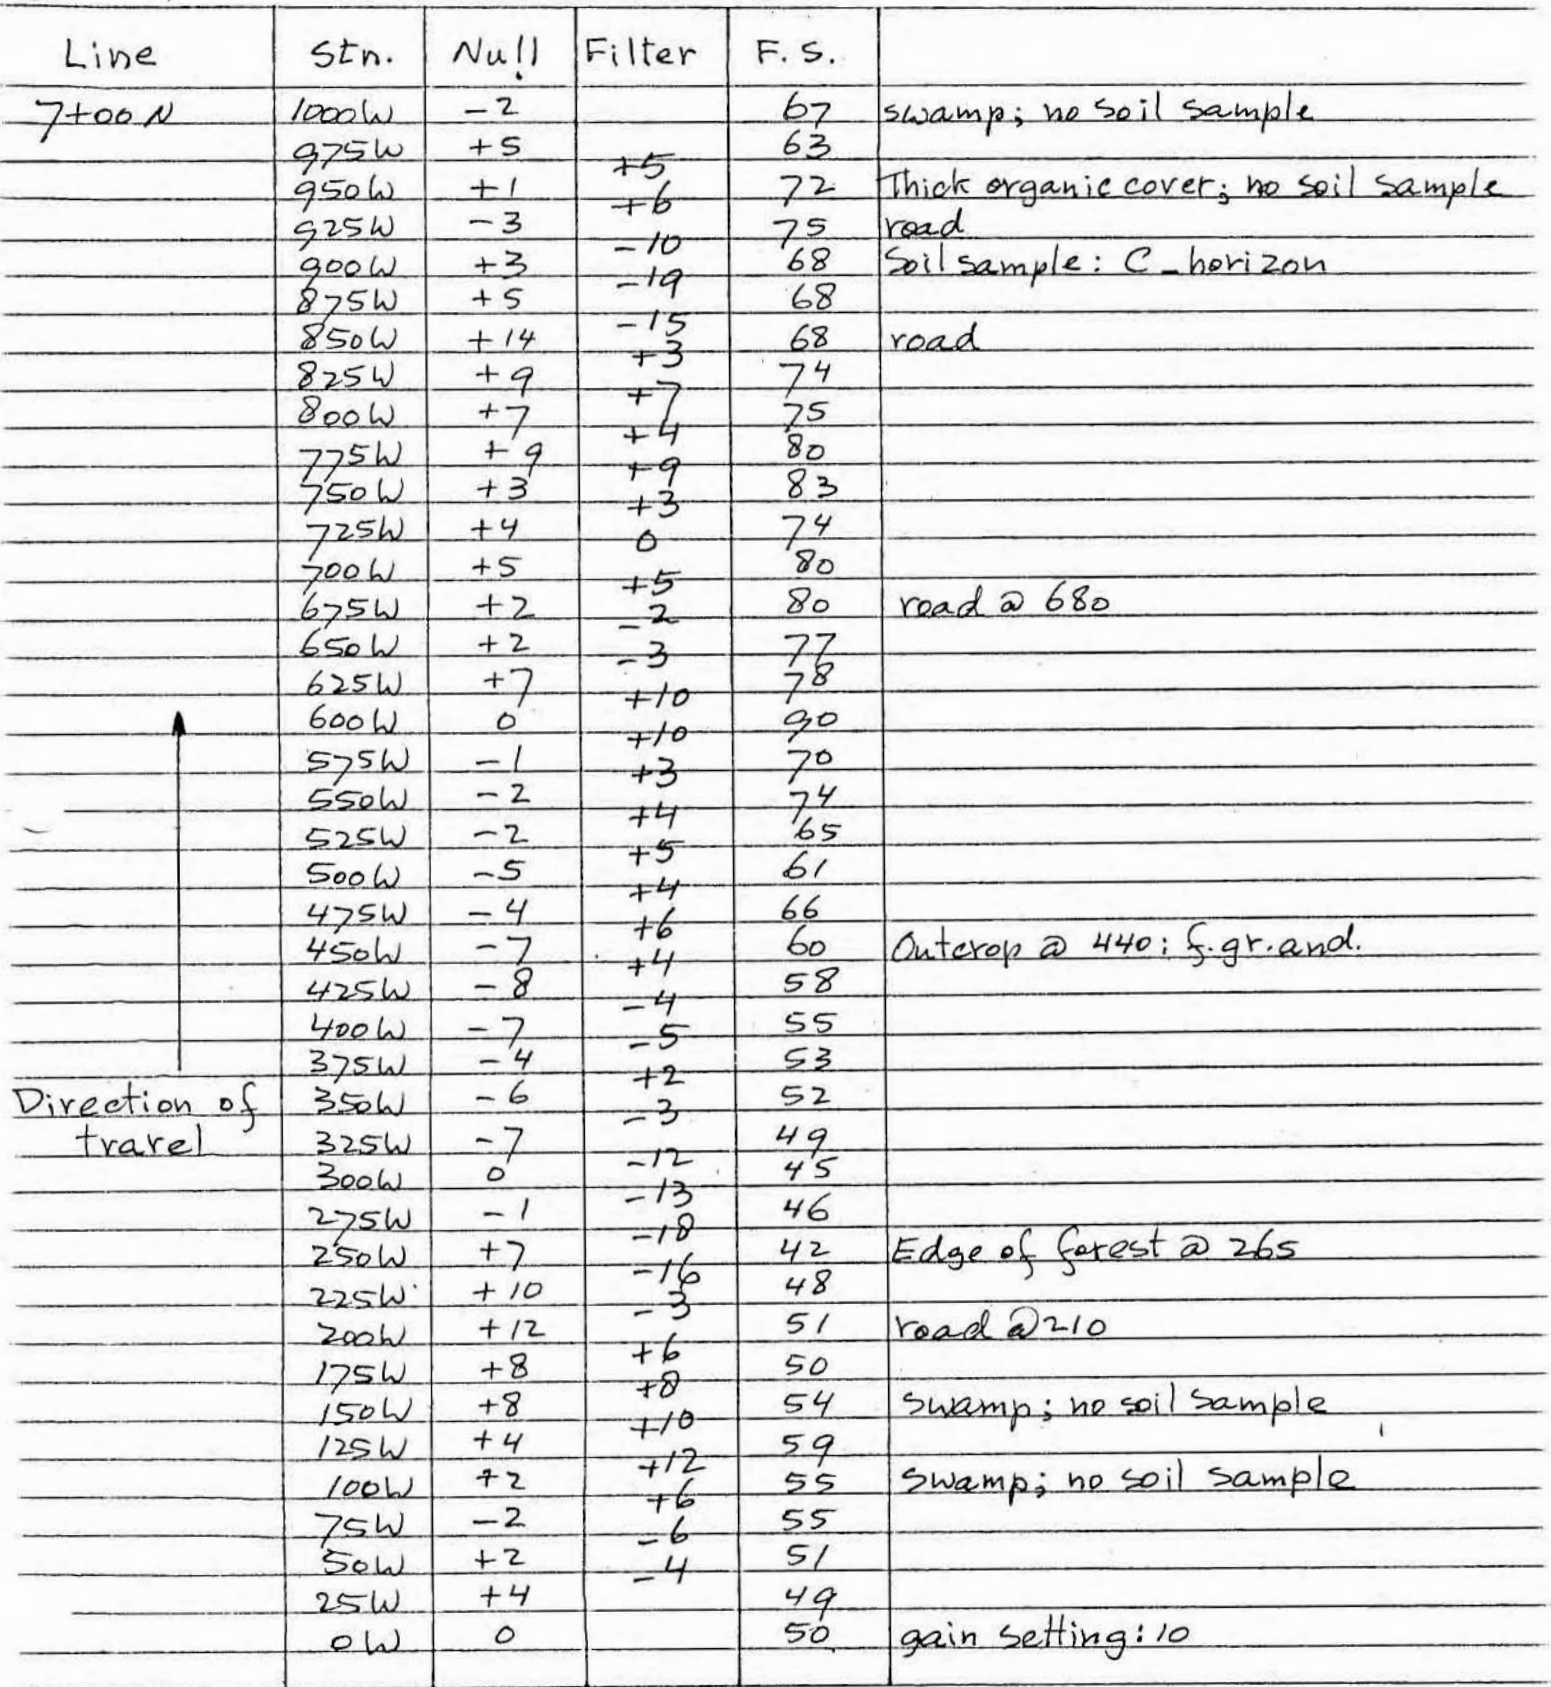 Line Stn. Null Filter F.S.
7+00N 1000W -2 67 swamp; no soil sample
975W +5 63
+5
950W +1 72 Thick organic cover; no soil sample
+6
925W -3 75 road
-10
900W +3 68 Soil sample: C-horizon
-19
875W +5 68
-15
850W +14 68 road
+3
825W +9 74
+7
800W +7 75
+4
775W +9 80
+9
750W +3 83
+3
725W +4 74
0
700W +5 80
+5
675W +2 80 road @ 680
-2
650W +2 77
-3
625W +7 78
+10
600W 0 90
+10
575W -1 70
+3
550W -2 74
+4
525W -2 65
+5
500W -5 61
+4
475W -4 66
+6
450W -7 60 Outcrop @ 440: f.gr.and.
+4
425W -8 58
-4
400W -7 55
-5
375W -4 53
+2
Direction of 350W -6 52
-3
travel 325W -7 49
-12
300W 0 45
-13
275W -1 46
-18
250W +7 42 Edge of forest @ 265
-16
225W +10 48
-3
200W +12 51 road @ 210
+6
175W +8 50
+8
150W +8 54 Swamp; no soil sample
+10
125W +4 59
+12
100W +2 55 Swamp; no soil sample
+6
75W -2 55
-6
50W +2 51
-4
25W +4 49
0W 0 50 gain setting: 10